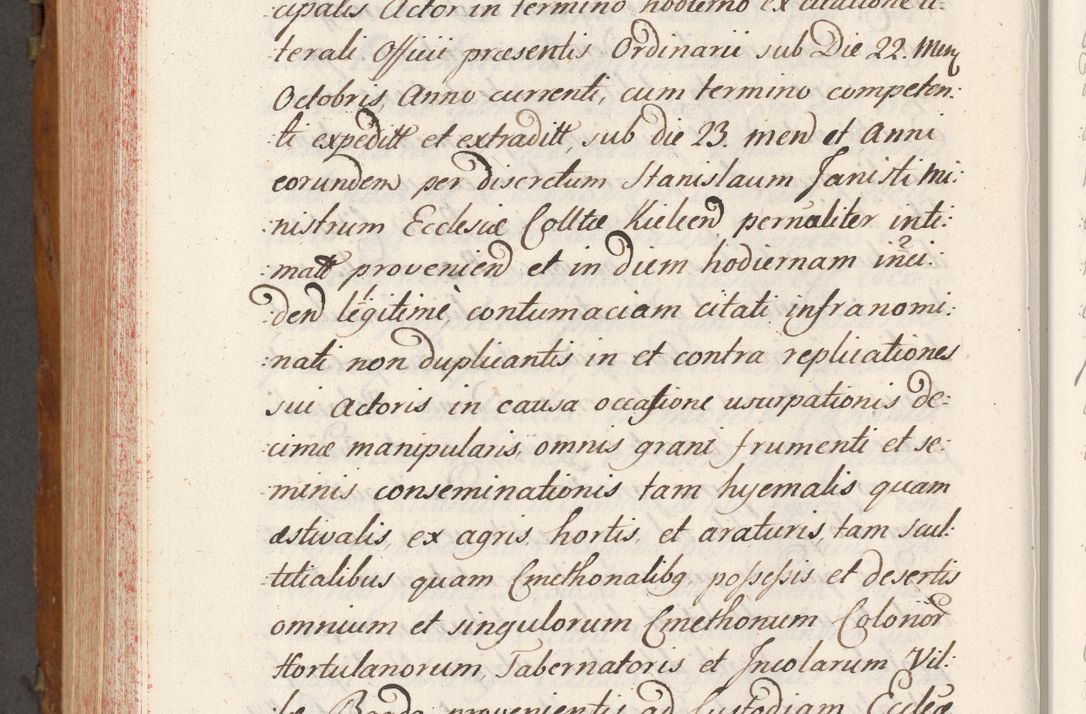 cipalis Actor in termino hodierno ex citatione li-
terali Officii præsentis Ordinarii sub Die 22. Men
Octobris, Anno currenti, cum termino competen:
ti expeditt et extraditt, sub die 23. men et Anni
eorundem per discretum Stanislaum Janisti Mi:
nistrum Ecclesiæ Colltæ Kielcen pernaliter inti:
matt provenien et in diem hodiernam inci:
den legitimè, contumaciam citati infranomi:
nati non duplicantis in et contra replicationes
sui Actoris in causa occasione usurpationis de-
cimæ manipularis, omnis grani frumenti et se:
minis conseminationis tam hyemalis quam
æstivalis, ex agris, hortis, et araturis, tam scul:
tetialibus quam Cmethonalibq possessis et desertis
omnium et singulorum Cmethonum Colonor
Hortulanorum, Tabernatoris et Incolarum Vil:
provenientis ad Custodiam Ecclæ